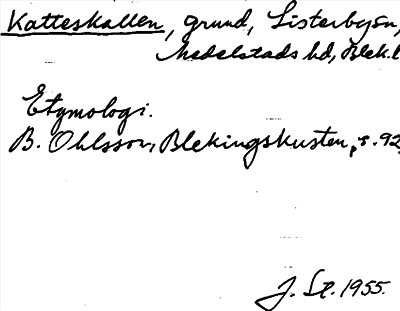 Katteskallen, grund, Listerbysn,
Medelstads hd, Blek. l
Etymologi.
B. Ohlsson, Blekingskusten, s. 92,
J. St. 1955.